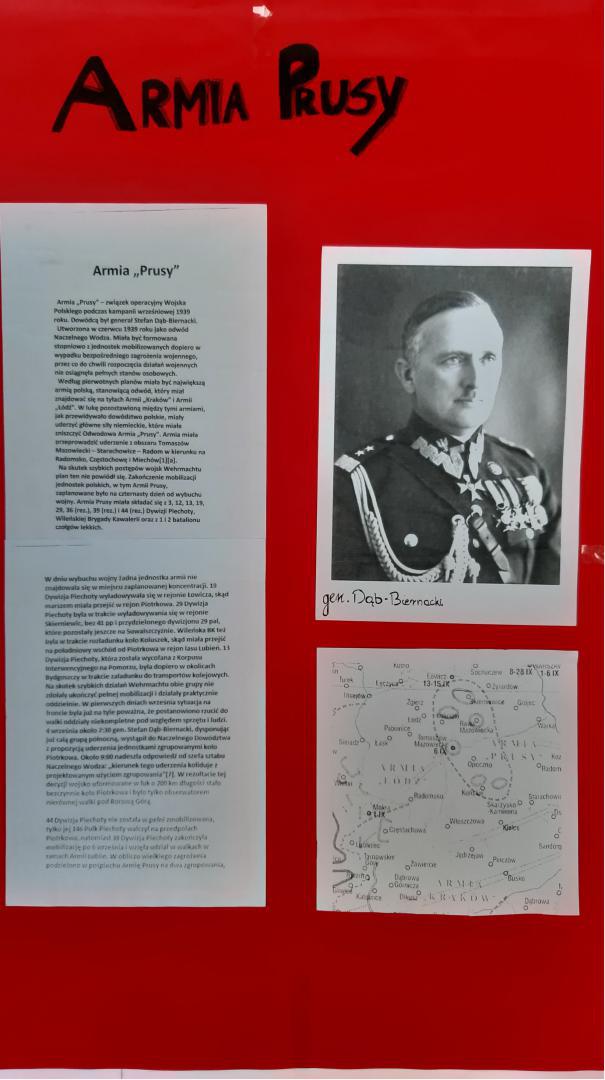 ARMIA PRUSY
Armia „Prusy”
Armia „Prusy” – związek operacyjny Wojska
Polskiego podczas kampanii wrześniowej 1939
roku. Dowódcą był generał Stefan Dąb-Biernacki.
Utworzona w czerwcu 1939 roku jako odwód
Naczelnego Wodza. Miała być formowana
stopniowo z jednostek mobilizowanych dopiero w
wypadku bezpośredniego zagrożenia wojennego,
przez co do chwili rozpoczęcia działań wojennych
nie osiągnęła pełnych stanów osobowych.
Według pierwotnych planów miała być największą
armią polską, stanowiącą odwód, który miał
znajdować się na tyłach Armii „Kraków” i Armii
„Łódź”. W lukę pozostawioną między tymi armiami,
jak przewidywało dowództwo polskie, miały
uderzyć główne siły niemieckie, które miała
zniszczyć Odwodowa Armia „Prusy”. Armia miała
przeprowadzić uderzenie z obszaru Tomaszów
Mazowiecki – Starachowice – Radom w kierunku na
Radomsko, Częstochowę i Miechów[1][a].
Na skutek szybkich postępów wojsk Wehrmachtu
plan ten nie powiódł się. Zakończenie mobilizacji
jednostek polskich, w tym Armii Prusy,
zaplanowane było na czternasty dzień od wybuchu
wojny. Armia Prusy miała składać się z 3, 12, 13, 19,
29, 36 (rez.), 39 (rez.) i 44 (rez.) Dywizji Piechoty,
Wileńskiej Brygady Kawalerii oraz z 1 i 2 batalionu
czołgów lekkich.
W dniu wybuchu wojny żadna jednostka armii nie
znajdowała się w miejscu zaplanowanej koncentracji. 19
Dywizja Piechoty wyładowywała się w rejonie Łowicza, skąd
marszem miała przejść w rejon Piotrkowa. 29 Dywizja
Piechoty była w trakcie wyładowywania się w rejonie
Skierniewic, bez 41 pp i przydzielonego dywizjonu 29 pal,
które pozostały jeszcze na Suwalszczyźnie. Wileńska BK też
była w trakcie rozładunku koło Koluszek, skąd miała przejść
na południowy wschód od Piotrkowa w rejon lasu Lubień. 13
Dywizja Piechoty, która została wycofana z Korpusu
Interwencyjnego na Pomorzu, była dopiero w okolicach
Bydgoszczy w trakcie załadunku do transportów kolejowych.
Na skutek szybkich działań Wehrmachtu obie grupy nie
zdołały ukończyć pełnej mobilizacji i działały praktycznie
oddzielnie. W pierwszych dniach września sytuacja na
froncie była już na tyle poważna, że postanowiono rzucić do
walki oddziały niekompletne pod względem sprzętu i ludzi.
4 września około 2:30 gen. Stefan Dąb-Biernacki, dysponując
już całą grupą północną, wystąpił do Naczelnego Dowództwa
z propozycją uderzenia jednostkami zgrupowanymi koło
Piotrkowa. Około 9:00 nadeszła odpowiedź od szefa sztabu
Naczelnego Wodza: „Kierunek tego uderzenia koliduje z
projektowanym użyciem zgrupowania”[7]. W rezultacie tej
decyzji wojsko uformowane w łuk o 200 km długości stało
bezczynnie koło Piotrkowa i było tylko obserwatorem
nierównej walki pod Borową Górą.
44 Dywizja Piechoty nie została w pełni zmobilizowana,
tylko jej 146 Pułk Piechoty walczył na przedpolach
Piotrkowa, natomiast 39 Dywizja Piechoty zakończyła
mobilizację po 6 września i wzięła udział w walkach w
ramach Armii Lublin. W obliczu wielkiego zagrożenia
podzielono w pośpiechu Armię Prusy na dwa zgrupowania,
gen. Dąb-Biernacki
Kutno
Sochaczew
8-28 IX
1-6 IX
Turek
Łęczyca
Łowicz
13-15 IX
Żyrardów
Skierniewice
Grójec
Zgierz
Łódź
Rawa
Mazowiecka
Warka
Pabianice
Sieradz
Łask
Tomaszów
Mazowiecki
6 IX
ARMIA
PRUSY
Opoczno
Radom
ARMIA
ŁÓDŹ
Końskie
Radomsko
Skarżysko
Kamienna
Starachowice
Mokra
1 IX
Włoszczowa
Kielce
Częstochowa
Lubliniec
Jędrzejów
Pińczów
Tarnowskie
Góry
Zawiercie
Busko
Dąbrowa
Górnicza
ARMIA
KRAKÓW
Katowice
Olkusz
Dąbrowa